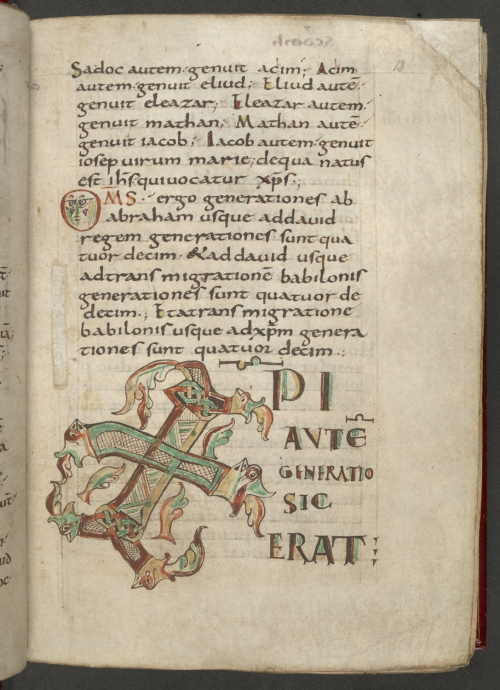 13
Sadoc autem·genuit acim; Acim
autem·genuit eliud; Eliud autē·
genuit eleazar; Eleazar autem·
genuit mathan; Mathan autē·
genuit iacob; Iacob autem·genuit
iosep uirum marie; dequa natus
est ihs·quiuocatur xp̄s·;
OMS·ergo generationes ab
abraham usque addauid
regem generationes sunt qua
tuor decim·&addauid usque
adtransmigrationē babilonis
generationes sunt quatuor de
decim·; Etatransmigratione
babilonis usque adxp̄m genera
tiones sunt quatuor decim·:
XPI
AVTĒ
GENERATIO
SIC
ERAT